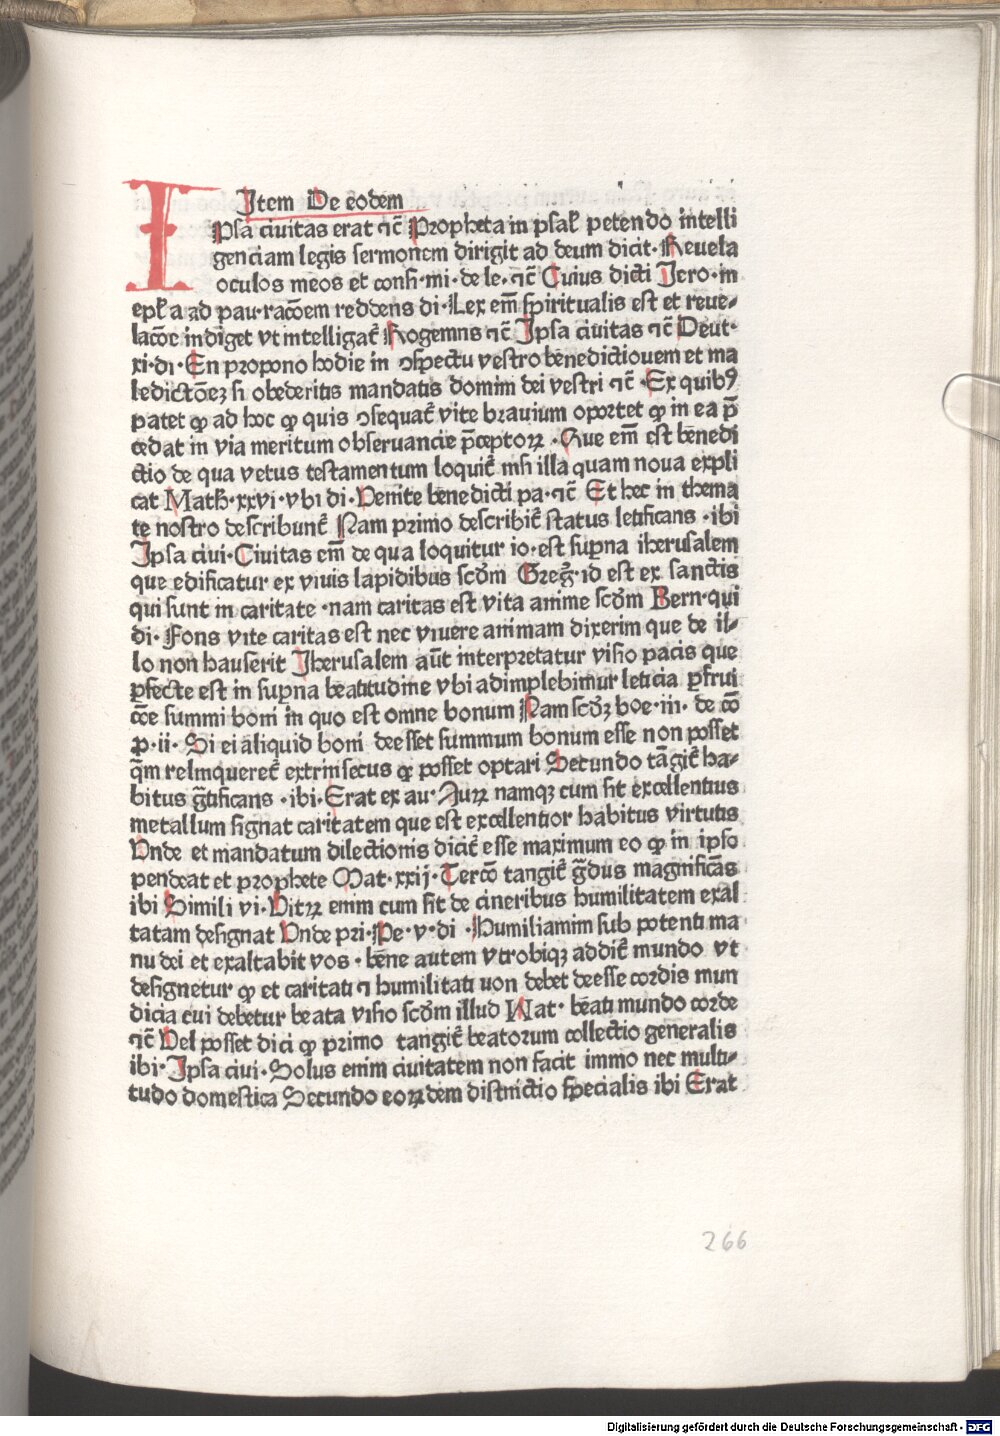 Item De eodem
IPsa ciuitas erat ⁊c̄ Propheta in psal̄ petendo intelli
genciam legis sermonem dirigit ad deum dicit· Reuela
oculos meos et consi·mi·de le·⁊c̄ Cuius dicti Iero·in
epl̄a ad pau·racōem reddens di·Lex em̄ spiritualis est et reue⸗
lacōe indiget vt intelligat̄ Rogemus ⁊c̄ Ipsa ciuitas ⁊c̄ Deut·
xi·di·En propono hodie in ɔspectu vestro benedictiouem et ma
ledictōeꝫ si obederitis mandatis domini dei vestri ⁊c̄ ·Ex quibꝰ
patet ꝙ ad hoc ꝙ quis ɔsequat̄ vite brauium oportet ꝙ in ea p̄
cedat in via meritum obseruancie p̄ceptoꝝ ·Que em̄ est benedi
ctio de qua vetus testamentum loquit̄ nisi illa quam noua expli
cat Math·xxvi·vbi di·Venite benedicti pa·⁊c̄ Et hec in thema
te nostro describunt̄ Nam primo describit̄ status letificans ·ibi
Ipsa ciui·Ciuitas em̄ de qua loquitur io·est sup̱na iherusalem
que edificatur ex viuis lapidibus scd̄m Greḡ·id est ex sanctis
qui sunt in caritate ·nam caritas est vita anime scd̄m Bern·qui
di· Fons vite caritas est nec viuere animam dixerim que de il⸗
lo non hauserit Iherusalem aūt interpretatur visio pacis que
ꝑfecte est in sup̱na beatitudine vbi adimplebimur leticia ꝑfrui
cōe summi boni in quo est omne bonum Nam scd̄ꝫ boe·iii· de cō
ꝓ·ii· Si ei aliquid boni deesset summum bonum esse non posset
qm̄ relinqueret̄ extrinsecus ꝙ posset optari Secundo tāgit̄ ha⸗
bitus grātificans ·ibi·Erat ex au· Auꝝ namqꝫ cum sit excellentius
metallum signat caritatem que est excellentior habitus virtutis
Vnde et mandatum dilectionis dicit̄ esse maximum eo ꝙ in ipso
pendeat et prophete Mat·xxij·Tercō tangit̄ grādus magnificās
ibi Simili vi·Vitꝝ enim cum sit de cineribus humilitatem exal
tatam designat Vnde pri·Pe·v·di ·Humiliamini sub potenti ma
nu dei et exaltabit vos · bene autem vtrobiqꝫ addit̄ mundo vt
designetur ꝙ et caritati ⁊ humilitati uon debet deesse cordis mun
dicia cui debetur beata visio scd̄m illud Mat· beati mundo corde
⁊c̄ Vel posset dici ꝙ primo tangit̄ beatorum collectio generalis
ibi· Ipsa ciui·Solus enim ciuitatem non facit immo nec multi⸗
tudo domestica Secundo eoꝝdem distinctio specialis ibi Erat
266
Digitalisierung gefördert durch die Deutsche Forschungsgemeinschaft - DFG